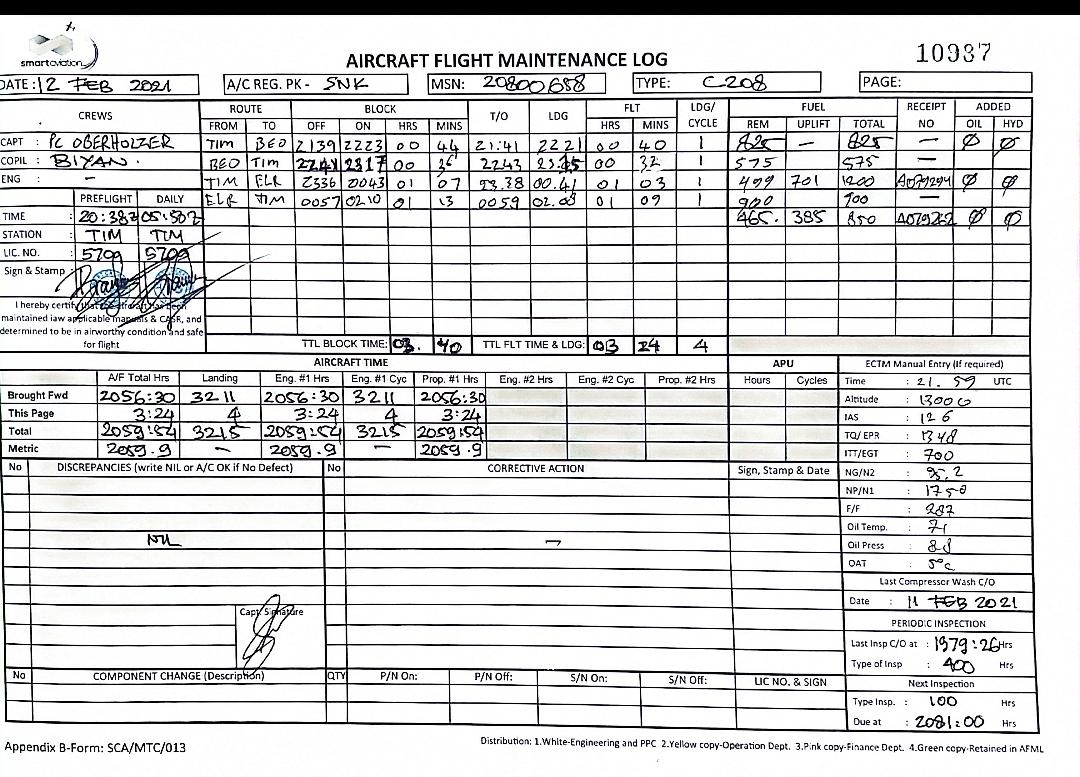 smartaviation
AIRCRAFT FLIGHT MAINTENANCE LOG
10937
DATE : 12 FEB 2021 A/C REG. PK - SNK MSN: 20800688 TYPE: C208 PAGE:
CREWS ROUTE BLOCK T/O LDG FLT LDG/ CYCLE FUEL RECEIPT NO ADDED
FROM TO OFF ON HRS MINS HRS MINS REM UPLIFT TOTAL OIL HYD
CAPT : PC OBERHOLZER TIM BEO 2139 2223 00 44 21:41 2221 00 40 1 825 - 825 - Ø Ø
COPIL : BIYAN. BEO TIM 2241 2317 00 36 2243 23.15 00 32 1 575 575 -
ENG : - TIM ELR 2336 0043 01 07 23.38 00.41 01 03 1 499 701 1200 A079294 Ø Ø
PREFLIGHT DAILY ELR TIM 0057 02.10 01 13 0059 02.08 01 09 1 900 900 -
TIME : 20:38z 05:50z 465. 385 850 Ø Ø
STATION : TIM TIM
LIC. NO. : 5709 5709
Sign & Stamp
I hereby certify that the aircraft has been
maintained iaw applicable manuals & CASR, and
determined to be in airworthy condition and safe
for flight
TTL BLOCK TIME: 03. 40 TTL FLT TIME & LDG: 03 24 4
AIRCRAFT TIME APU ECTM Manual Entry (If required)
A/F Total Hrs Landing Eng. #1 Hrs Eng. #1 Cyc Prop. #1 Hrs Eng. #2 Hrs Eng. #2 Cyc Prop. #2 Hrs Hours Cycles Time : 21.59 UTC
Brought Fwd 2056:30 3211 2056:30 3211 2056:30 Altitude : 13000
This Page 3:24 4 3:24 4 3:24 IAS : 126
Total 2059:54 3215 2059:54 3215 2059:54 TQ/ EPR : 1348
Metric 2059.9 - 2059.9 - 2059.9 ITT/EGT : 700
No DISCREPANCIES (write NIL or A/C OK if No Defect) No CORRECTIVE ACTION Sign, Stamp & Date NG/N2 : 95.2
NP/N1 : 1750
F/F : 287
Oil Temp. : 71
NIL - Oil Press : 88
OAT : 5°C
Last Compressor Wash C/O
Date : 11 FEB 2021
Capt. Signature
PERIODIC INSPECTION
Last Insp C/O at : 1979:26 Hrs
Type of Insp : 400 Hrs
No COMPONENT CHANGE (Description) QTY P/N On: P/N Off: S/N On: S/N Off: LIC NO. & SIGN Next Inspection
Type Insp. : 100 Hrs
Due at : 2081:00 Hrs
Appendix B-Form: SCA/MTC/013
Distribution: 1.White-Engineering and PPC 2.Yellow copy-Operation Dept. 3.Pink copy-Finance Dept. 4.Green copy-Retained in AFML